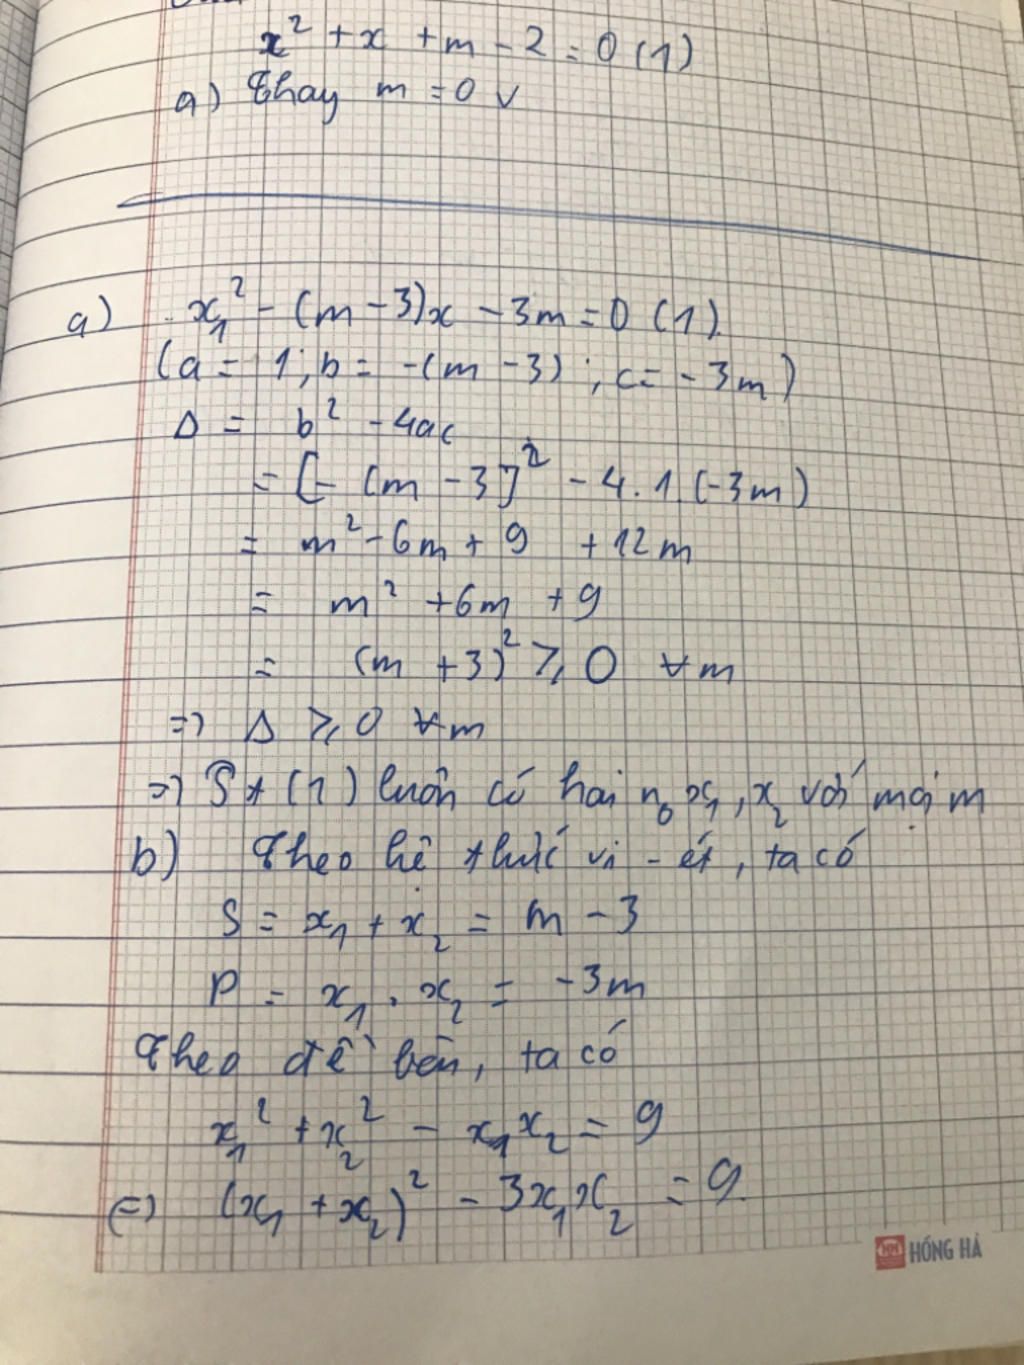 x² + x + m - 2 = 0 (1)
a) Thay m = 0 v
a) x₁² - (m - 3)x - 3m = 0 (1)
(a = 1; b = -(m - 3); c = -3m)
Δ = b² - 4ac
= [- (m - 3]² - 4.1.(-3m)
= m² - 6m + 9 + 12m
= m² + 6m + 9
= (m + 3)² ⩾ 0 ∀m
=> Δ ⩾ 0 ∀m
=> (1) luôn có hai n₀ x₁, x₂ với mọi m
b) Theo hệ thức vi - ét, ta có
S = x₁ + x₂ = m - 3
P = x₁ . x₂ = -3m
Theo đề bên, ta có
x₁² + x₂² - x₁x₂ = 9
(=) (x₁ + x₂)² - 3x₁x₂ = 9
HỒNG HÀ